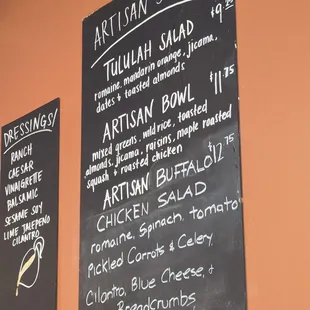 DRESSINGS!
RANCH
CAESAR
VINAIGRETTE
BALSAMIC
SESAME SOY
LIME JALEPENO
CILANTRO
ARTISAN
$9
TULULAH SALAD
romaine, mandarin orange, jicama,
dates & toasted almonds
ARTISAN BOWL $11.75
mixed greens, wild rice, toasted
almonds, jicama, raisins, maple roasted
squash + roasted chicken
ARTISAN BUFFALO $12.75
CHICKEN SALAD
romaine, Spinach, tomato
Pickled Carrots & Celery
Cilantro, Blue Cheese, &
Breadcrumbs